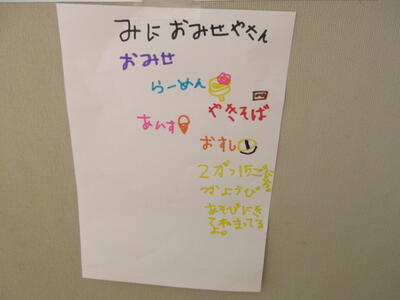 みに おみせやさん
おみせ
らーめん
やきそば
あいす
おすし
2がつ15にち
かようび
あそびにき
てねまってる
よ。